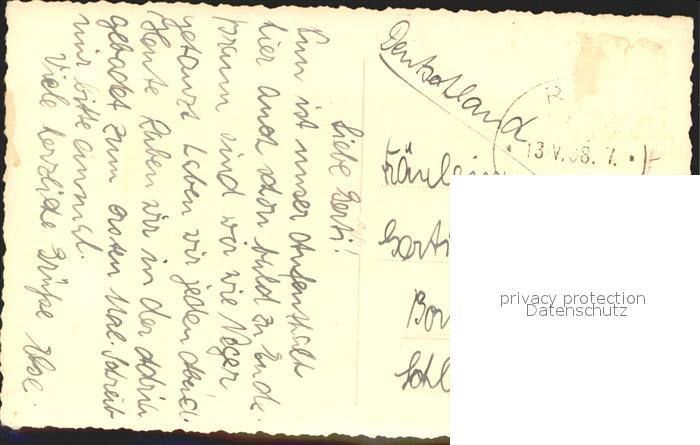 Liebe Gerti!
Nun ist unser Aufenthalt
hier auch schon bald zu Ende.
praun sind wir wie Neger
getanzt haben wir jeden Abend.
Heute haben wir in der Adria
gebadet zum ersten Mal. Schreib
mir bitte einmal.
Viele herzliche Grüße
Deutschland
13 V. 38. 7.
Fräulein
Gerti
privacy protection
Datenschutz